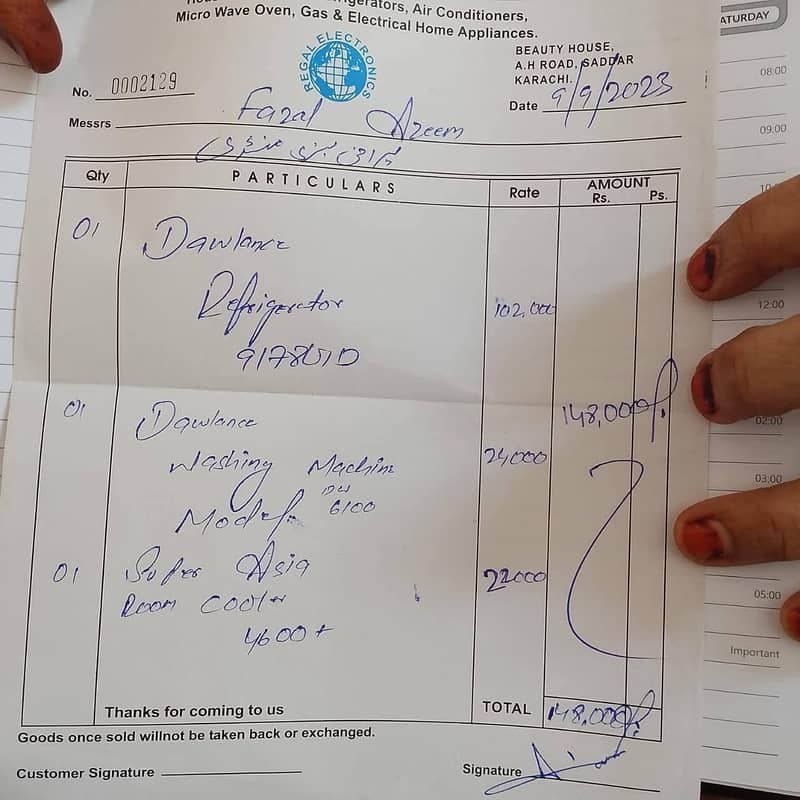 Refrigerators, Air Conditioners,
Micro Wave Oven, Gas & Electrical Home Appliances.
REGAL ELECTRONICS
BEAUTY HOUSE,
A.H ROAD, SADDAR
KARACHI.
No. 0002129
Date 9/9/2023
Messrs Fazal Azeem
Qty PARTICULARS Rate AMOUNT
Rs. Ps.
01 Dawlance
Refrigerator 102,000
148,000/.
01 Dawlance
Washing Machine 24000
Model. DW 6100
01 Super Asia 22000
Room Cooler
4600+
Thanks for coming to us TOTAL 148,000/.
Goods once sold willnot be taken back or exchanged.
Customer Signature Signature
ATURDAY
08:00
09:00
10
12:00
02:00
03:00
05:00
Important